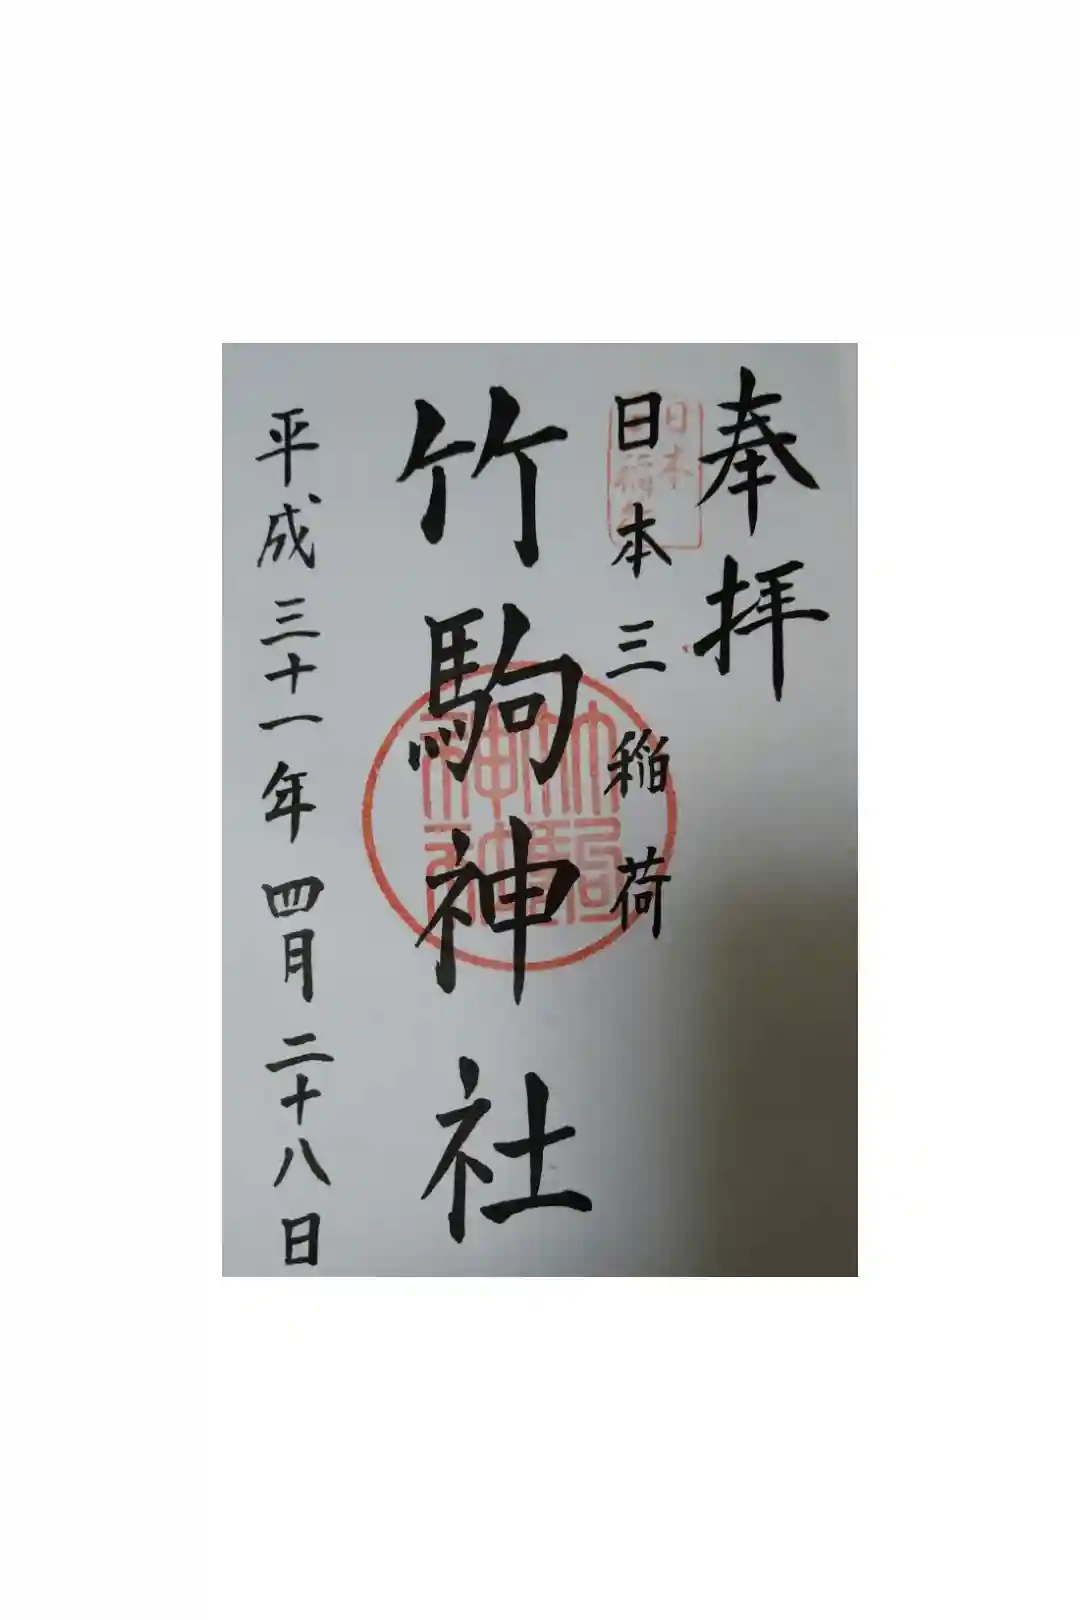 奉拝
日本三稲荷
竹駒神社
平成三十一年四月二十八日
竹駒神社